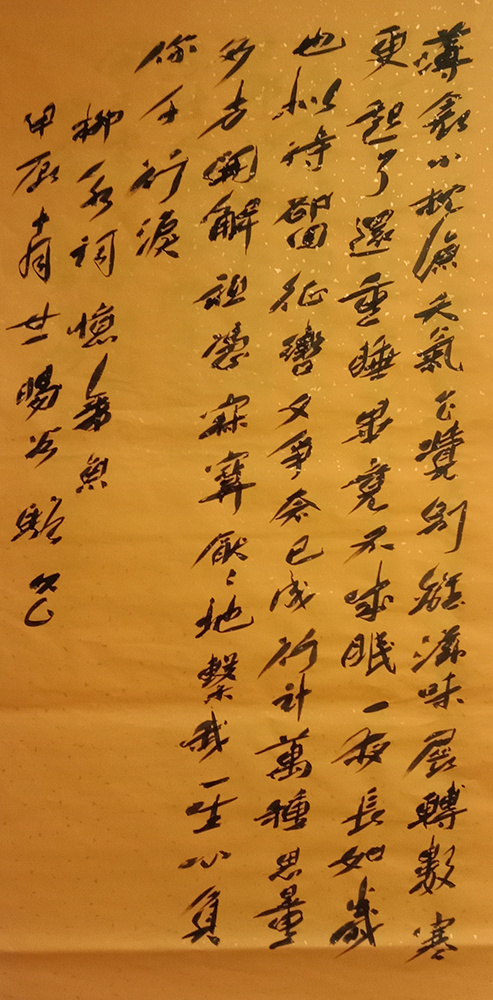 薄衾小枕涼天氣乍覺別離滋味展轉數寒
更起了還重睡畢竟不成眠一夜長如歲
也擬待卻回征轡又爭奈已成行計萬種思量
多方開解祗恁寂寞厭〻地繫我一生心負
你千行淚
柳永詞憶帝京
甲辰十月廿一暘谷